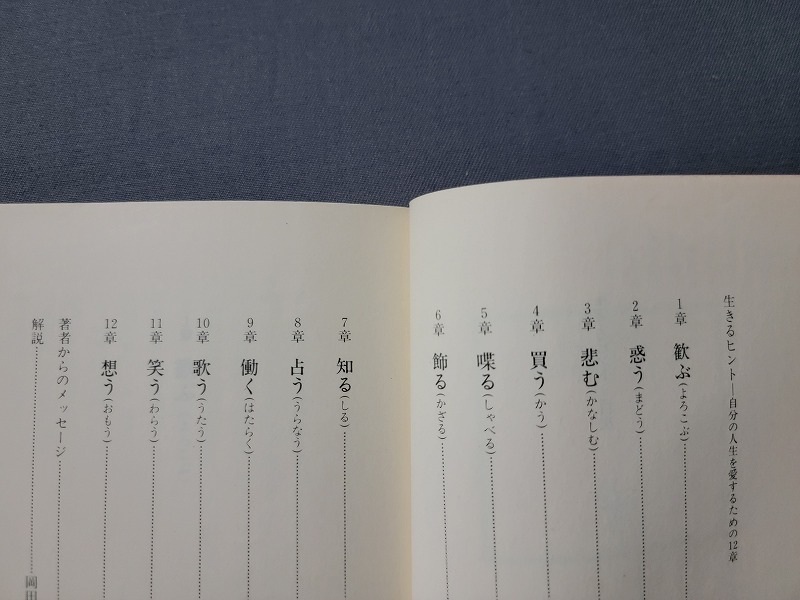 生きるヒント―自分の人生を愛するための12章
1章 歓ぶ(よろこぶ)
2章 惑う(まどう)
3章 悲む(かなしむ)
4章 買う(かう)
5章 喋る(しゃべる)
6章 飾る(かざる)
7章 知る(しる)
8章 占う(うらなう)
9章 働く(はたらく)
10章 歌う(うたう)
11章 笑う(わらう)
12章 想う(おもう)
著者からのメッセージ
解説 岡田